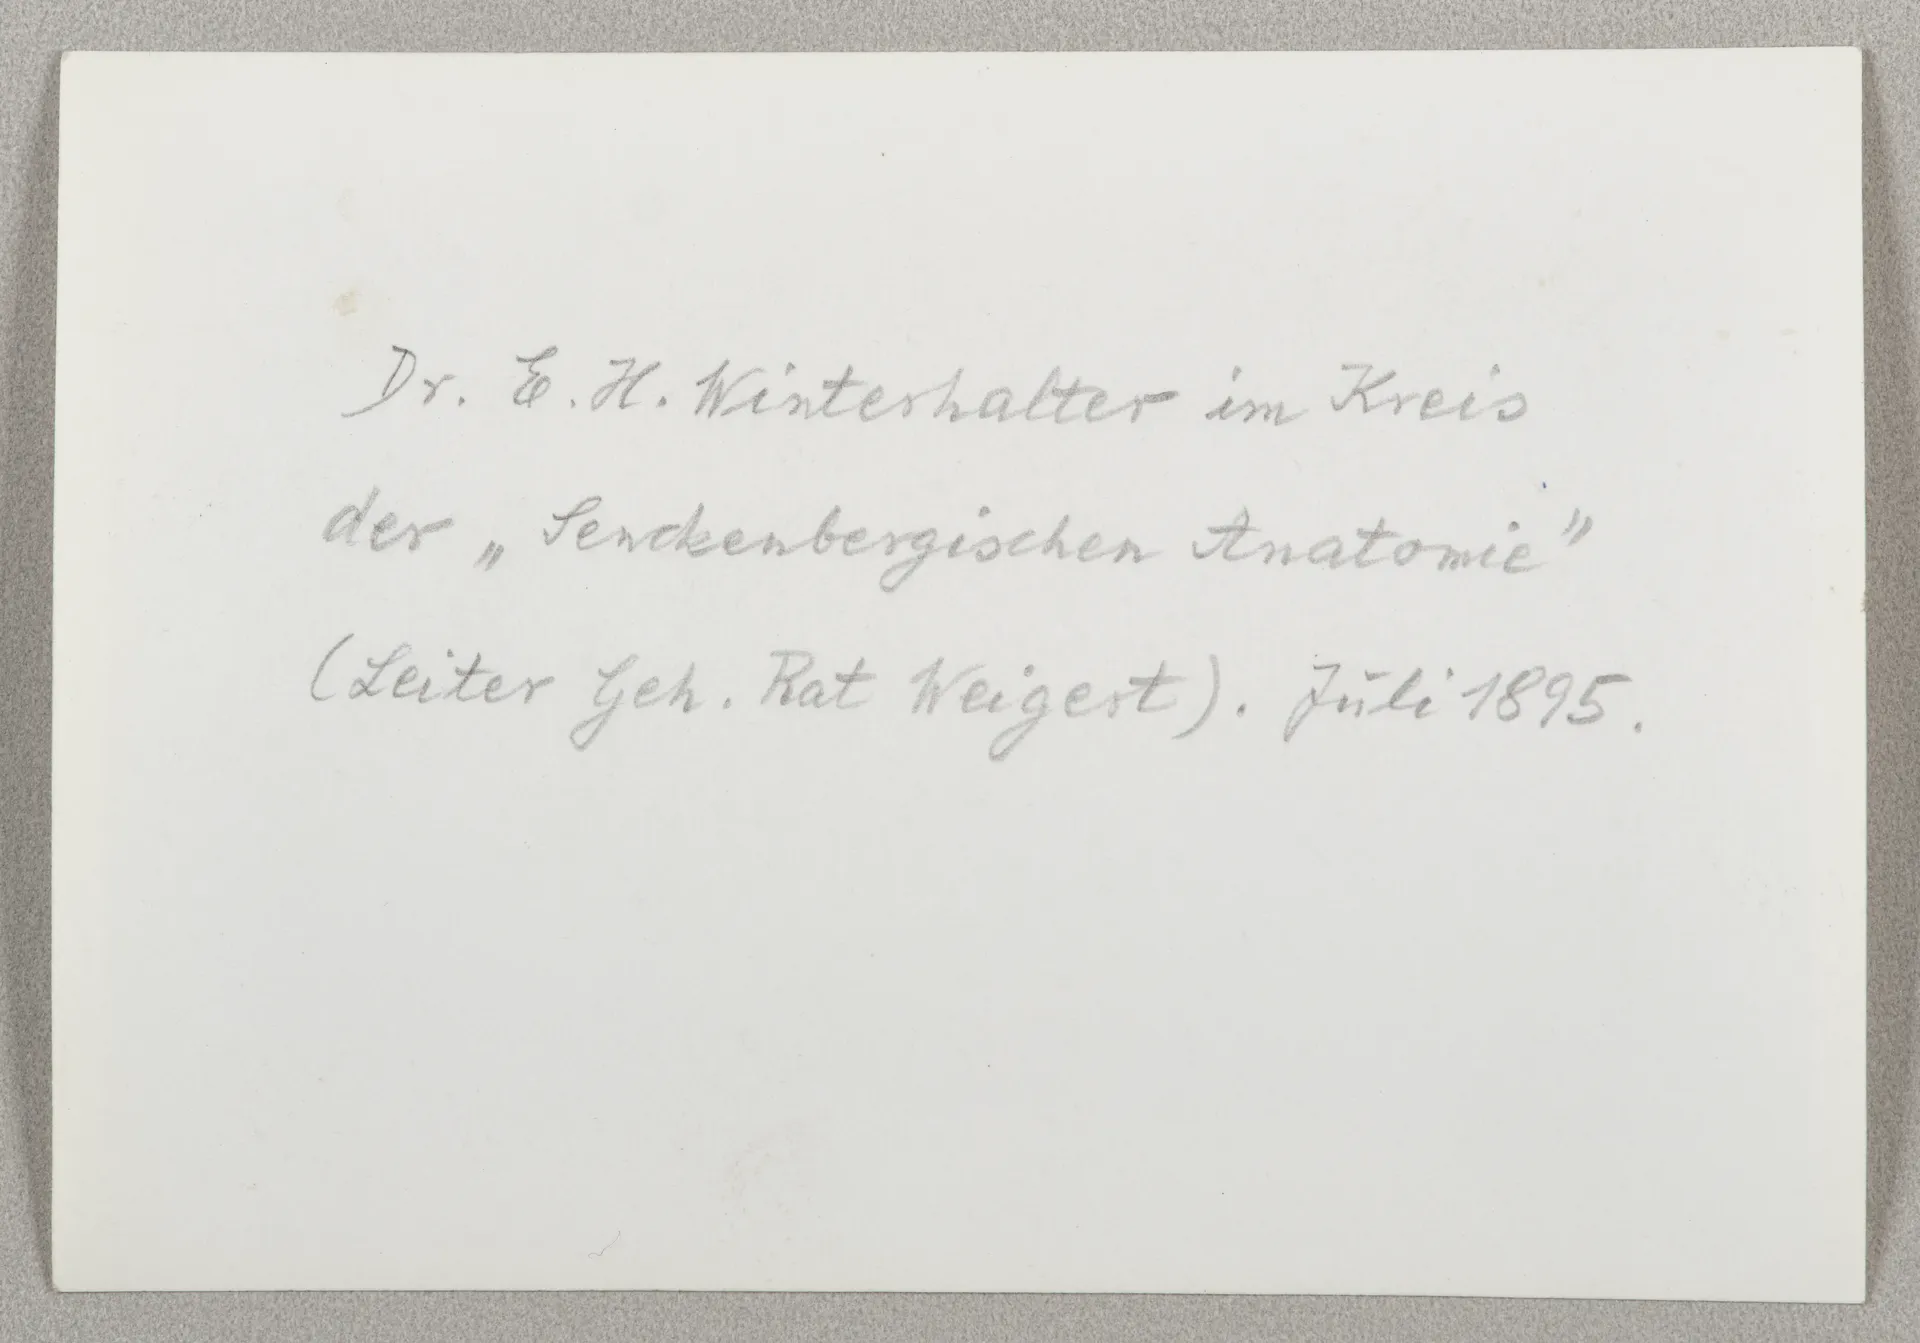 Dr. E. H. Winterhalter im Kreis
der „Senckenbergischen Anatomie”
(Leiter Geh. Rat Weigert). Juli 1895.